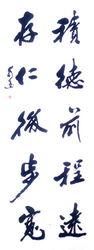 積德前程遠
存仁後步寬